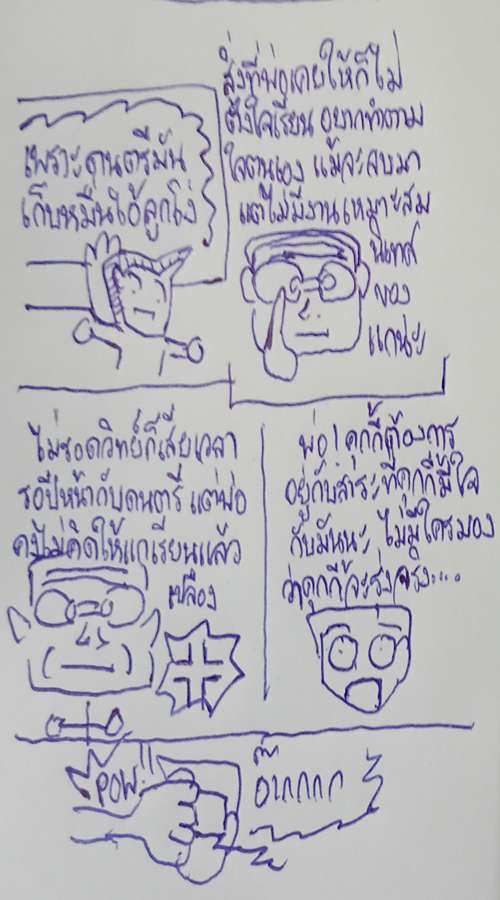 เพราะดนตรีมัน
เก็บหมื่นไอ้ลูกโง่
สิ่งที่พ่อเคยให้ก็ไม่
ตั้งใจเรียน อยากทำตาม
ใจตนเอง แม้จะจบมา
แต่ไม่มีงานเหมาะสม
นิเทศ
ของ
แกน่ะ
ไม่รอดวิทย์ก็เสียเวลา
รอปีหน้ากับดนตรี แต่พ่อ
คงไม่คิดให้แกเรียนแล้ว
เปลือง
พ่อ! คุกกี้ต้องการ
อยู่กับสาระที่คุกกี้มีใจ
กับมันนะ ไม่มีใครมอง
ว่าคุกกี้จะรุ่งจริง....
POW!!
อ๊ากกกก